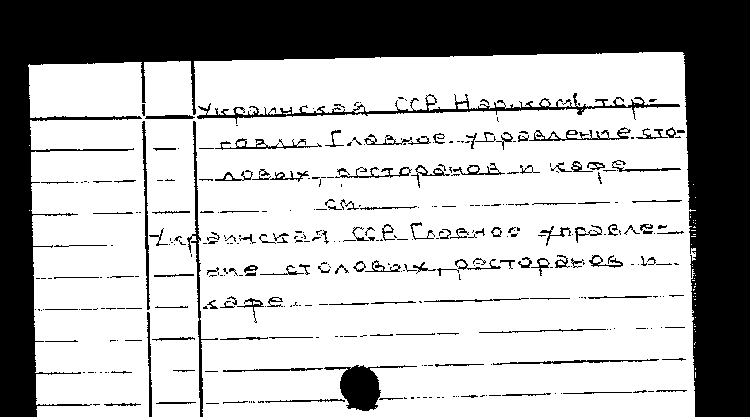 Украинская ССР. Нар.ком. тор-
говли. Главное управление сто-
ловых, ресторанов и кафе
см.
Украинская ССР. Главное управле-
ние столовых, ресторанов и
кафе.